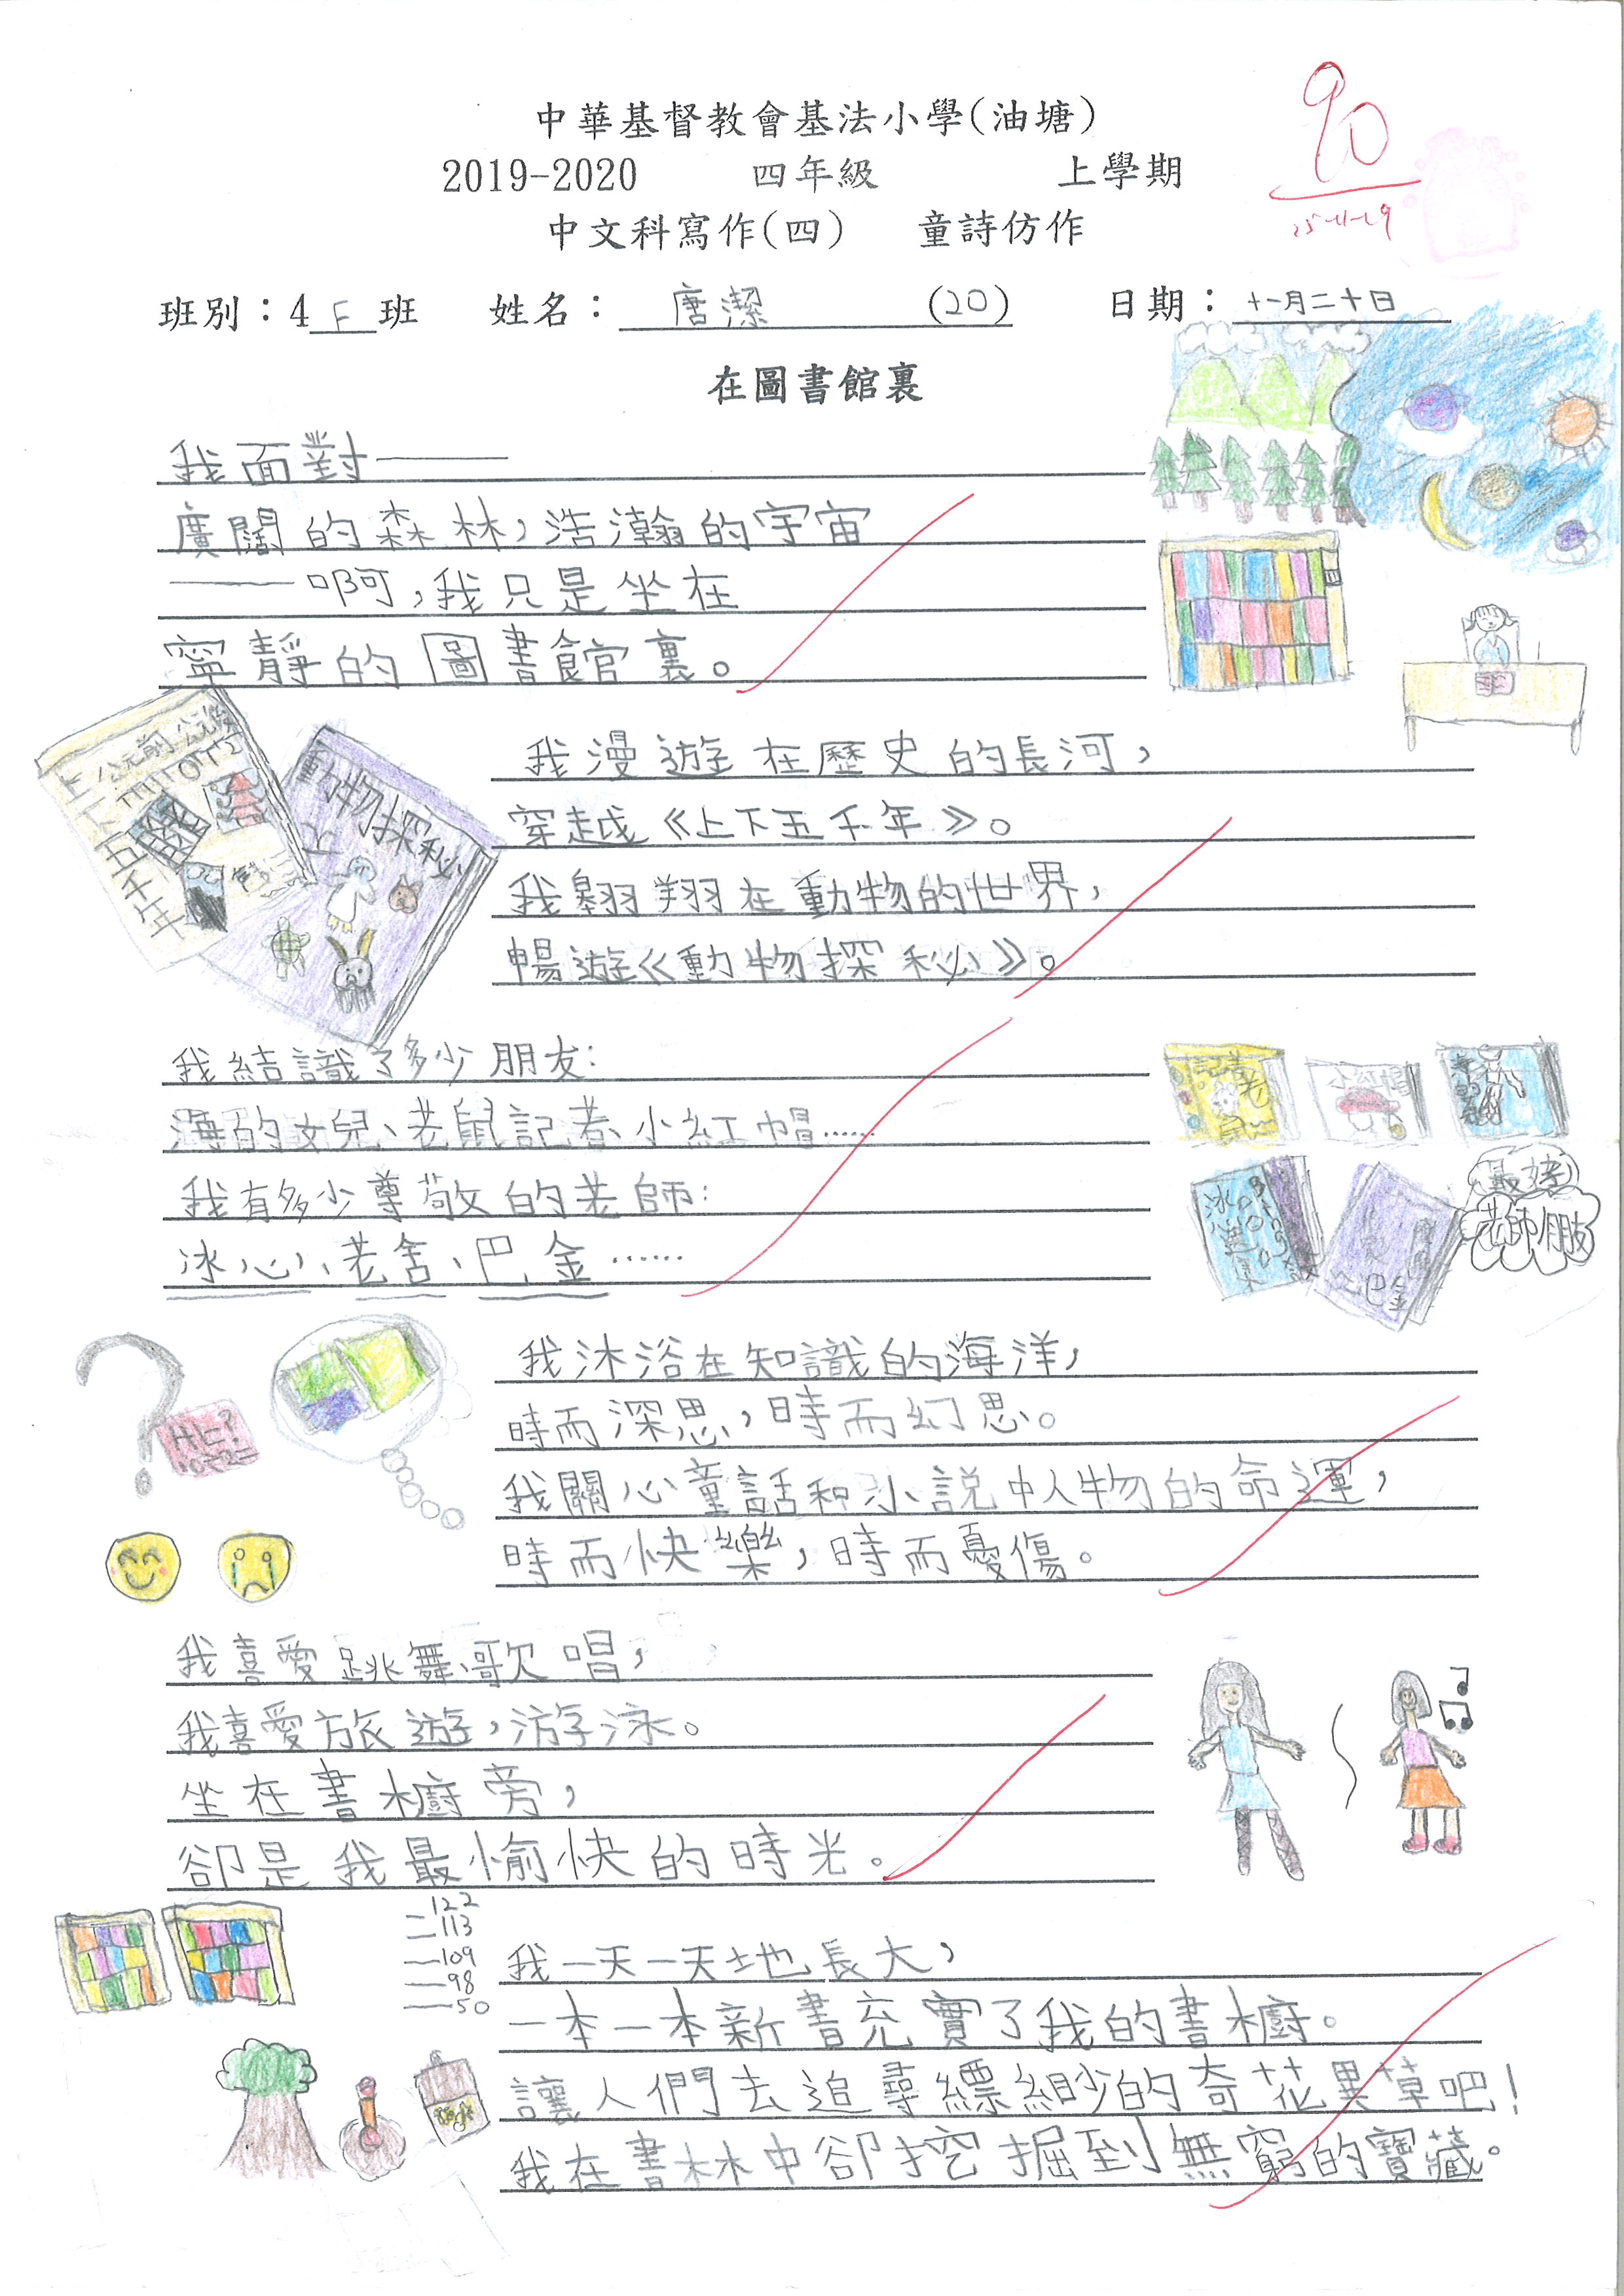 中華基督教會基法小學(油塘)
2019-2020 四年級 上學期
中文科寫作(四) 童詩仿作
90
25-11-19
班別：4F班 姓名：唐潔 (20) 日期：十一月二十日
在圖書館裏
我面對——
廣闊的森林，浩瀚的宇宙
——啊，我只是坐在
寧靜的圖書館裏。
上下五千年
公元前 公元後
動物探秘
我漫遊在歷史的長河，
穿越《上下五千年》。
我翱翔在動物的世界，
暢遊《動物探秘》。
我結識了多少朋友：
海的女兒、老鼠記者、小紅帽……
我有多少尊敬的老師：
冰心、老舍、巴金……
小紅帽
冰心選集
巴金
最棒
老師朋友
我沐浴在知識的海洋，
時而深思，時而幻思。
我關心童話和小說中人物的命運，
時而快樂，時而憂傷。
我喜愛跳舞、歌唱，
我喜愛旅遊，游泳。
坐在書櫥旁，
卻是我最愉快的時光。
122
113
109
98
50
我一天一天地長大，
一本一本新書充實了我的書櫥。
讓人們去追尋縹緲的奇花異草吧！
我在書林中卻挖掘到無窮的寶藏。